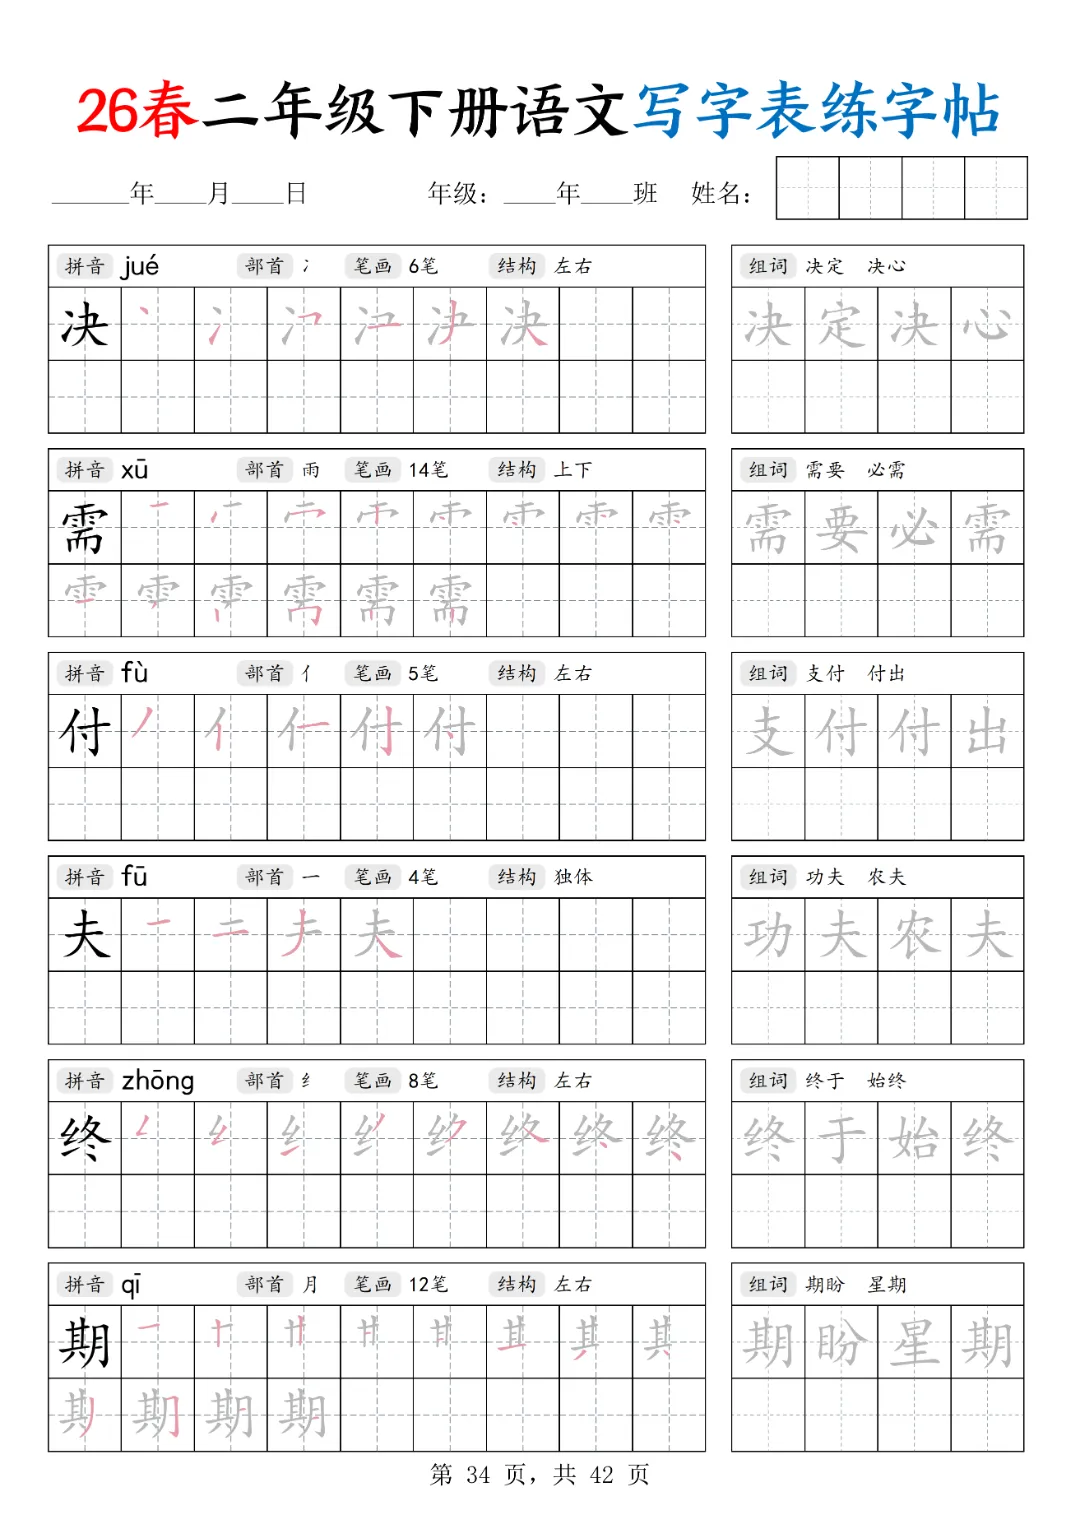 26春二年级下册语文写字表练字帖
______年____月____日 年级：____年____班 姓名：
拼音 jué 部首 冫 笔画 6笔 结构 左右
决
组词 决定 决心
决定决心
拼音 xū 部首 雨 笔画 14笔 结构 上下
需
组词 需要 必需
需要必需
拼音 fù 部首 亻 笔画 5笔 结构 左右
付
组词 支付 付出
支付付出
拼音 fū 部首 一 笔画 4笔 结构 独体
夫
组词 功夫 农夫
功夫农夫
拼音 zhōng 部首 纟 笔画 8笔 结构 左右
终
组词 终于 始终
终于始终
拼音 qī 部首 月 笔画 12笔 结构 左右
期
组词 期盼 星期
期盼星期
第 34 页，共 42 页